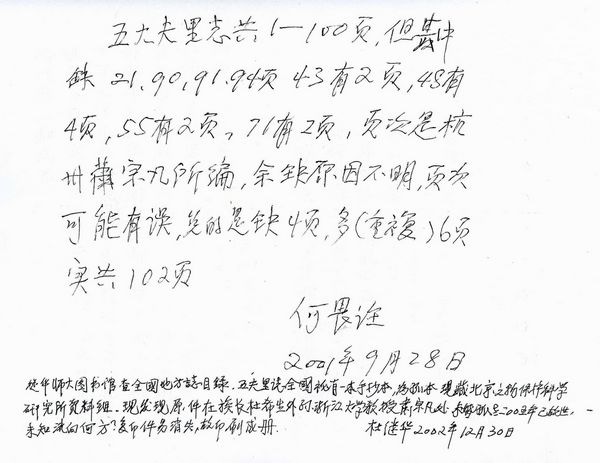 五大夫里志共1—100页，但其中
缺21.90,91.94页 43有2页，48有
4页，55有2页，71有2页，页次是杭
州蕭宗九所编，余缺原因不明，页次
可能有误，总的是缺4页，多(重複)6页
实共102页
何畏途
2001年9月28日
华师大图书馆查全國地方誌目録．五夫里誌全國抵有一本手抄本，為孤本 现藏北京文物保作科学
研究所資料组．现发现原件在族长杜春生外甥浙江大学教授蕭宗凡处 2005年已
未知流向何方？复印件易消失，故印刷成册． 杜维华2002年12月30日